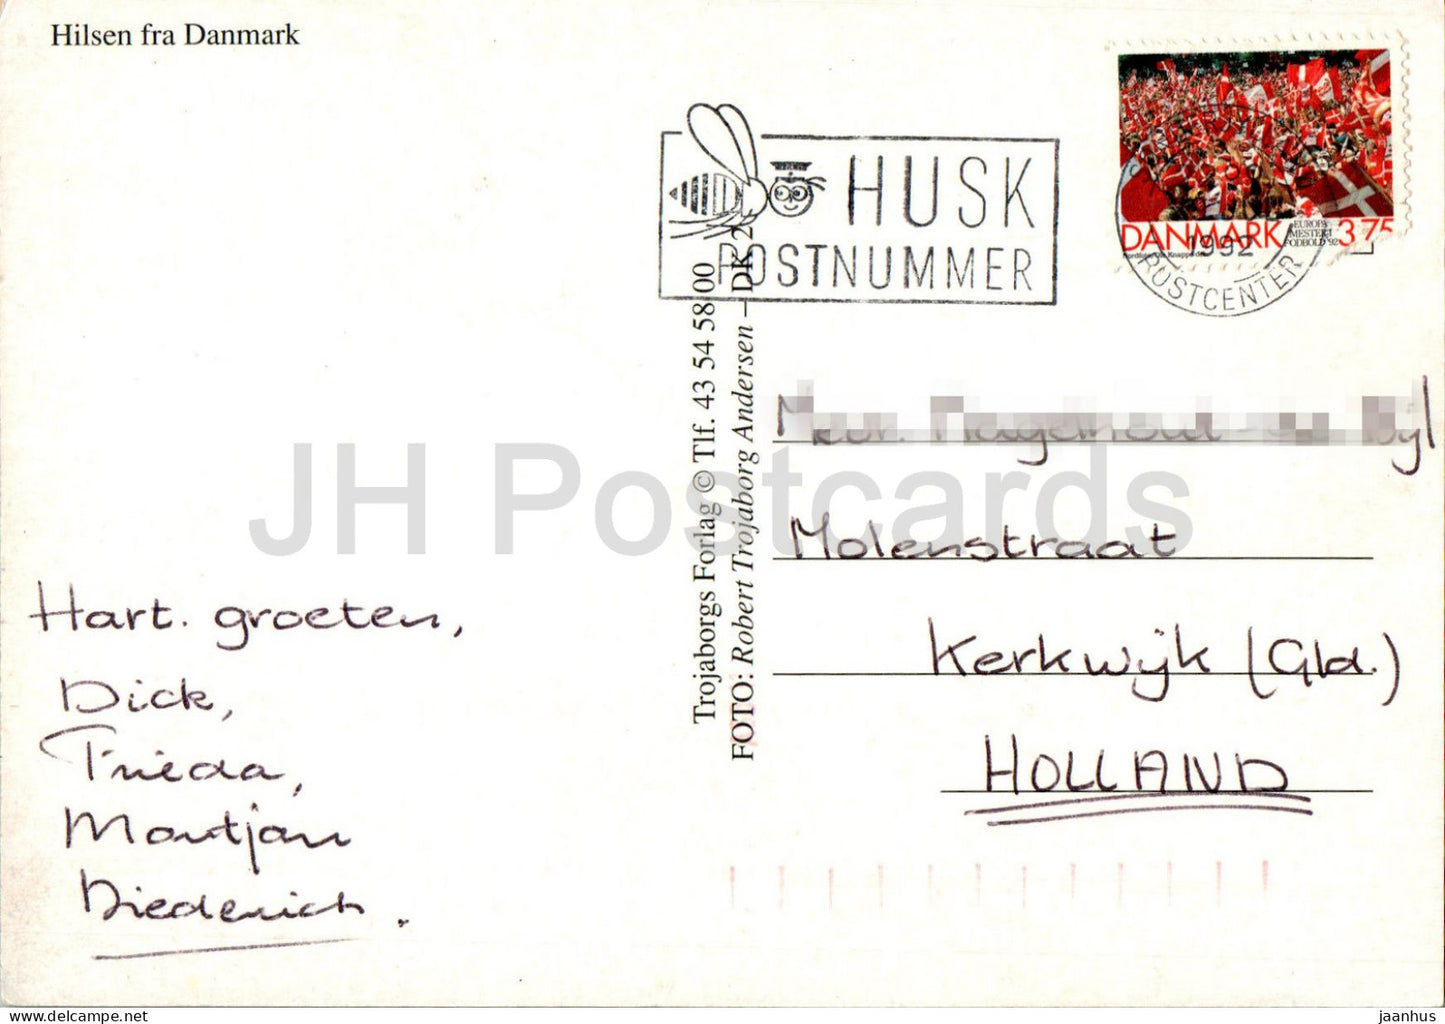 Hilsen fra Danmark
HUSK
POSTNUMMER
DANMARK
EUROPA
MESTER I
FODBOLD '92
3.75
1992
POSTCENTER
Trojaborgs Forlag © Tlf. 43 54 58 00
FOTO: Robert Trojaborg Andersen – DK 2
JH Postcards
Molenstraat
Kerkwijk (Gld.)
HOLLAND
Hart. groeten,
Dick,
Frieda,
Martjan
Diederich.
jaanhus